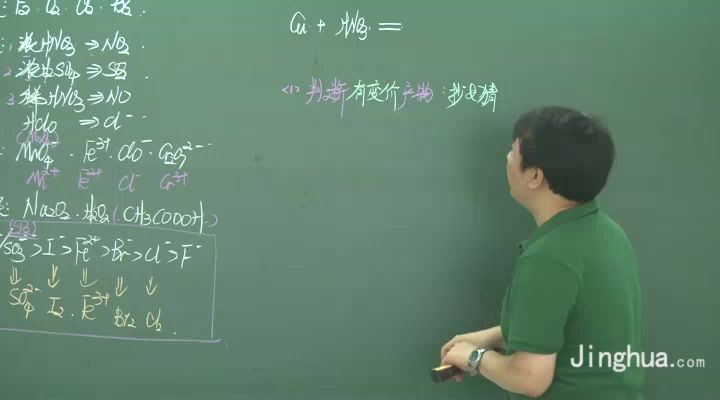 : F₂ . O₂ . Cl₂ . Br₂ .
: 1 浓HNO₃ ⇒ NO₂ .
2 浓H₂SO₄ ⇒ SO₂ .
3 稀HNO₃ ⇒ NO
HClO ⇒ Cl⁻
(MnO₂)
: MnO₄⁻ . Fe³⁺ . ClO⁻ . Cr₂O₇²⁻
Mn²⁺ Fe²⁺ Cl⁻ Cr³⁺
: Na₂O₂ . H₂O₂ (CH₃COOOH)
(SO₂)
SO₃²⁻ > I⁻ > Fe²⁺ > Br⁻ > Cl⁻ > F⁻
⇓ ⇓ ⇓ ⇓ ⇓
SO₄²⁻ I₂ . Fe³⁺ Br₂ Cl₂ .
Cu + HNO₃ =
<1> 判断有变价产物：抄与猜
Jinghua.com